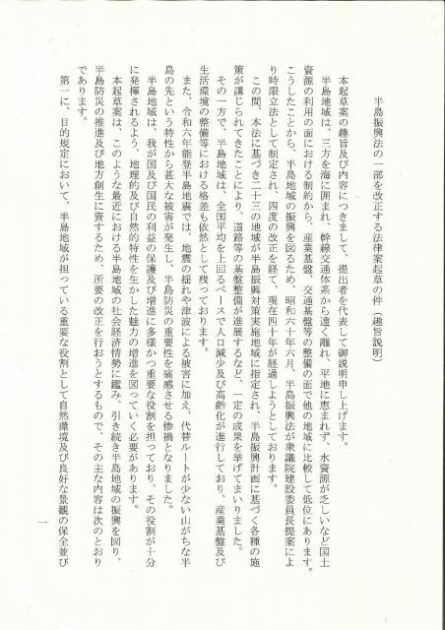 半島振興法の一部を改正する法律案起草の件（趣旨説明）
本起草案の趣旨及び内容につきまして、提出者を代表して御説明申し上げます。
半島地域は、三方を海に囲まれ、幹線交通体系から遠く離れ、平地に恵まれず、水資源が乏しいなど国土
資源の利用の面における制約から、産業基盤、交通基盤等の整備の面で他の地域に比較して低位にあります。
こうしたことから、半島地域の振興を図るため、昭和六十年六月、半島振興法が衆議院建設委員長提案によ
り時限立法として制定され、四度の改正を経て、現在四十年が経過しようとしております。
この間、本法に基づき二十三の地域が半島振興対策実施地域に指定され、半島振興計画に基づく各種の施
策が講じられてきたことにより、道路等の基盤整備が進展するなど、一定の成果を挙げてまいりました。
その一方で、半島地域は、全国平均を上回るペースで人口減少及び高齢化が進行しており、産業基盤及び
生活環境の整備等における格差も依然として残っております。
また、令和六年能登半島地震では、地震の揺れや津波による被害に加え、代替ルートが少ない山がちな半
島の先という特性から甚大な被害が発生し、半島防災の重要性を痛感させる惨禍となりました。
半島地域は、我が国及び国民の利益の保護及び増進に多様かつ重要な役割を担っており、その役割が十分
に発揮されるよう、地理的及び自然的特性を生かした魅力の増進を図っていく必要があります。
本起草案は、このような最近における半島地域の社会経済情勢に鑑み、引き続き半島地域の振興を図り、
半島防災の推進及び地方創生に資するため、所要の改正を行おうとするもので、その主な内容は次のとおり
であります。
第一に、目的規定において、半島地域が担っている重要な役割として自然環境及び良好な景観の保全並び
一